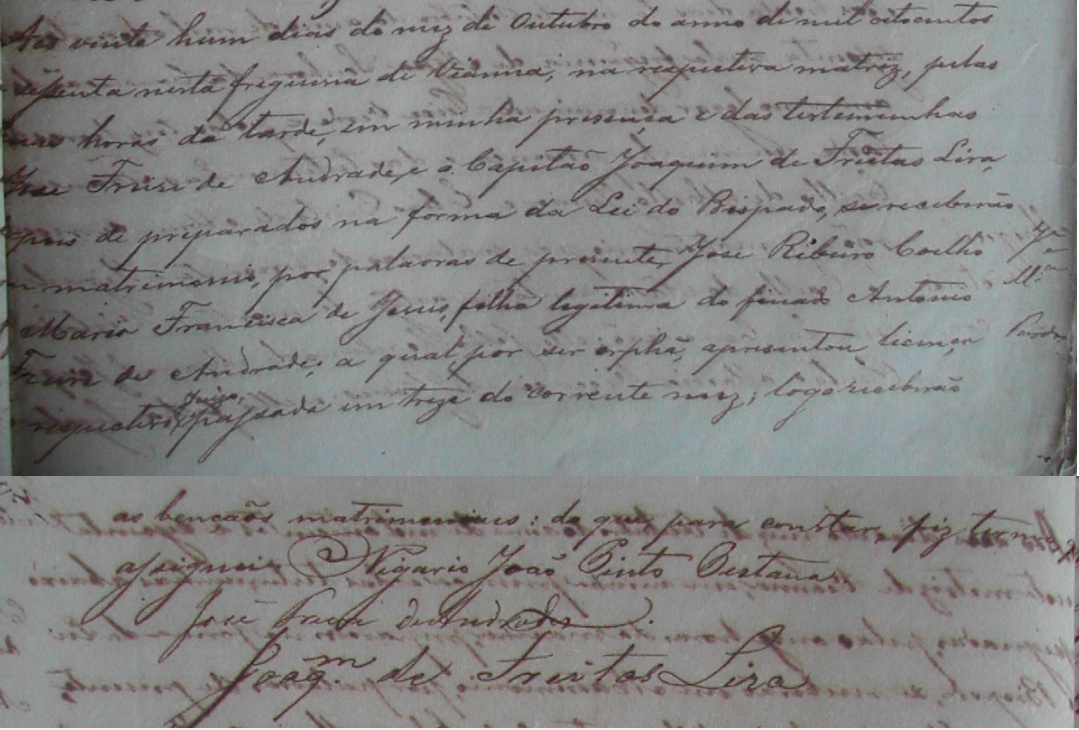 Aos vinte hum dias do mez de Outubro do anno de mil oitocentos
e sessenta nesta freguesia de Vianna, na respectiva matriz, pelas
horas da tarde, em minha presença e das testemunhas
Jose Freire de Andrade, e o Capitão Joaquim de Freitas Lira,
depois de preparados na forma da Lei do Bispado, se receberão
em matrimonio, por palavras de presente, Jose Ribeiro Coelho
e Maria Francisca de Jesus, filha legitima do finado Antonio
Freire de Andrade, a qual por ser orphã, apresentou licença
do respectivo juizo, passada em treze do corrente mez; logo receberão
as bençaõs matrimoniaes: do que, para constar, fiz termo
assignei O Vigario João Pinto
José Freire de Andrade
Joaqm de Freitas Lira